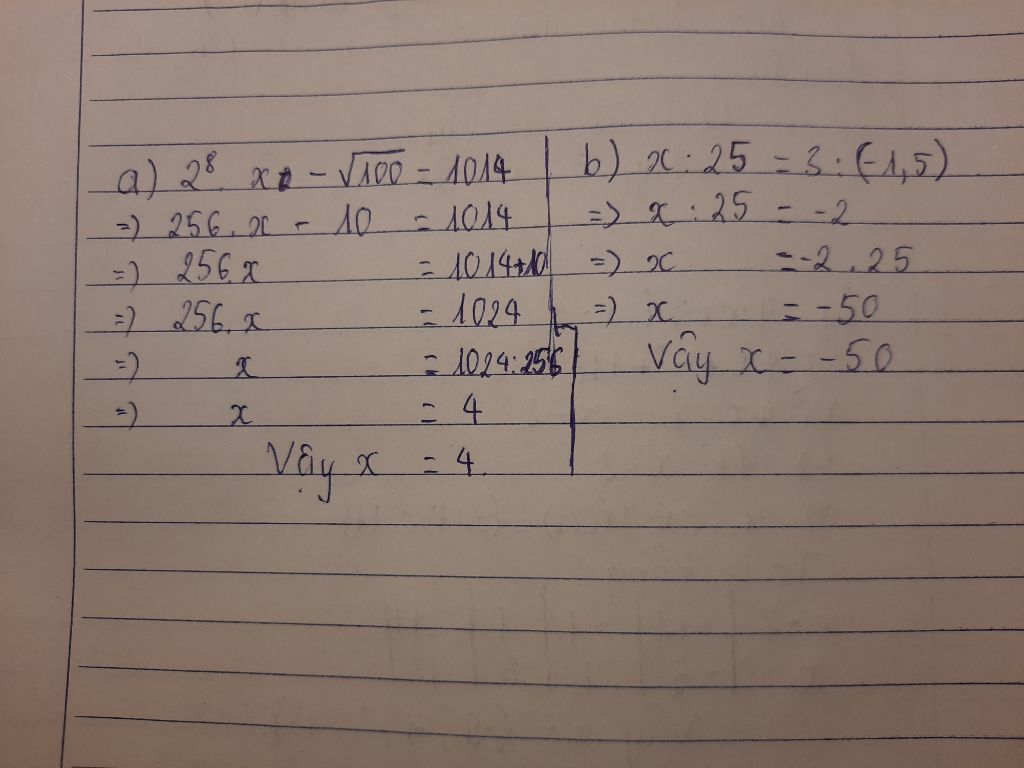 a) 2⁸. x - √100 = 1014
=) 256. x - 10 = 1014
=) 256.x = 1014+10
=) 256. x = 1024
=) x = 1024:256
=) x = 4
Vậy x = 4.
b) x : 25 = 3 : (-1,5)
=) x : 25 = -2
=) x = -2 . 25
=) x = -50
Vậy x = -50